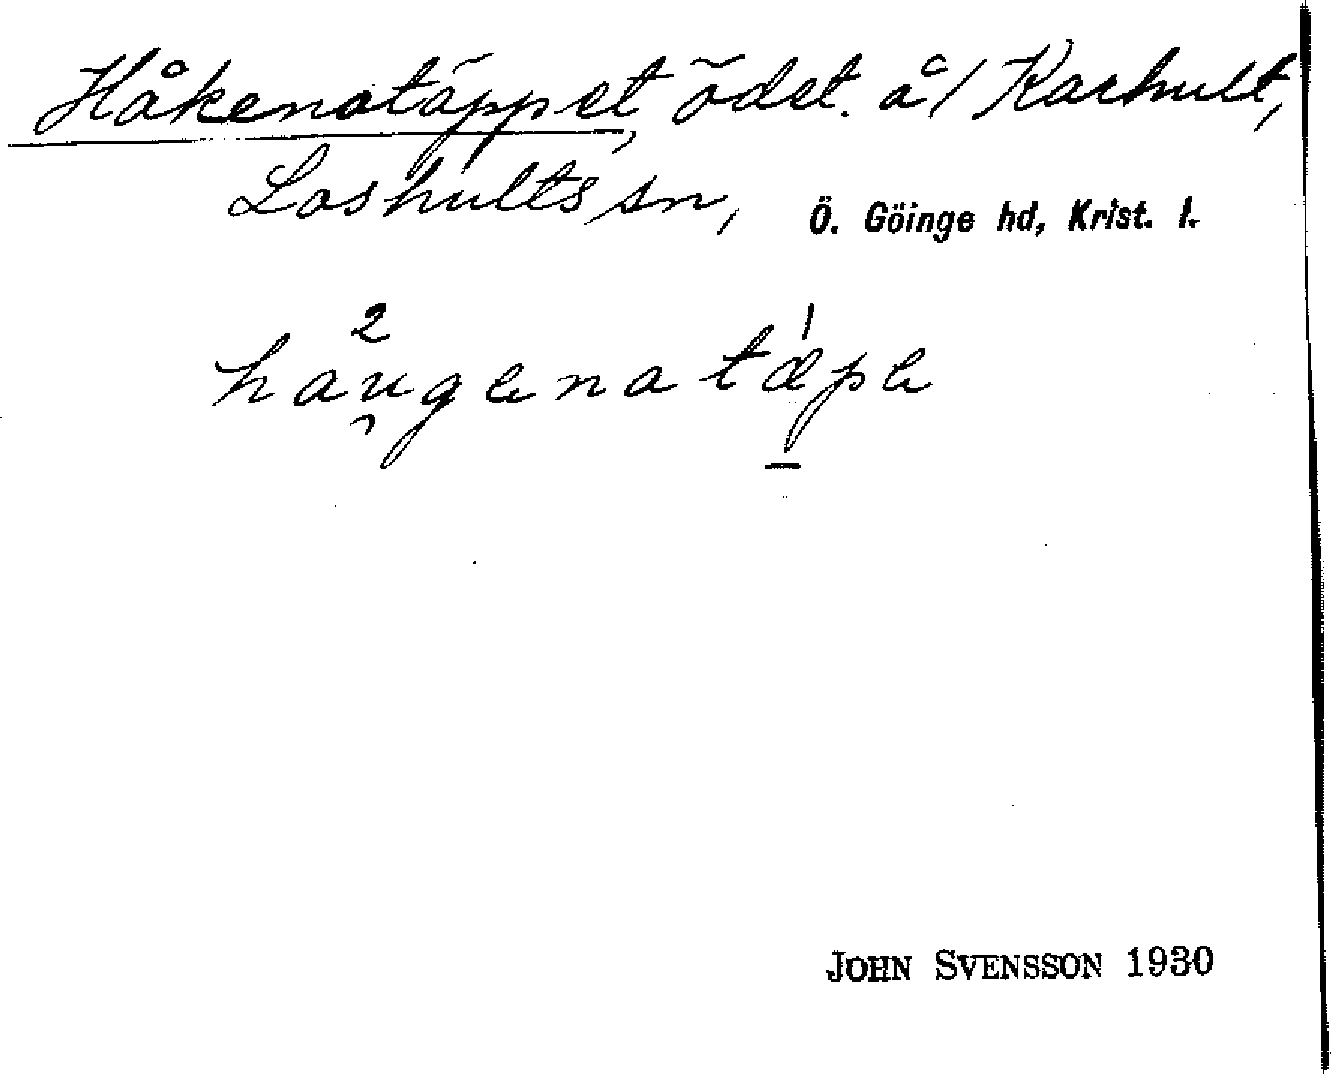 Håkenatäppet, ödet. å/ Karhult,
Loshults sn, Ö. Göinge hd, Krist. l.
hau̯genatæpe
JOHN SVENSSON 1930